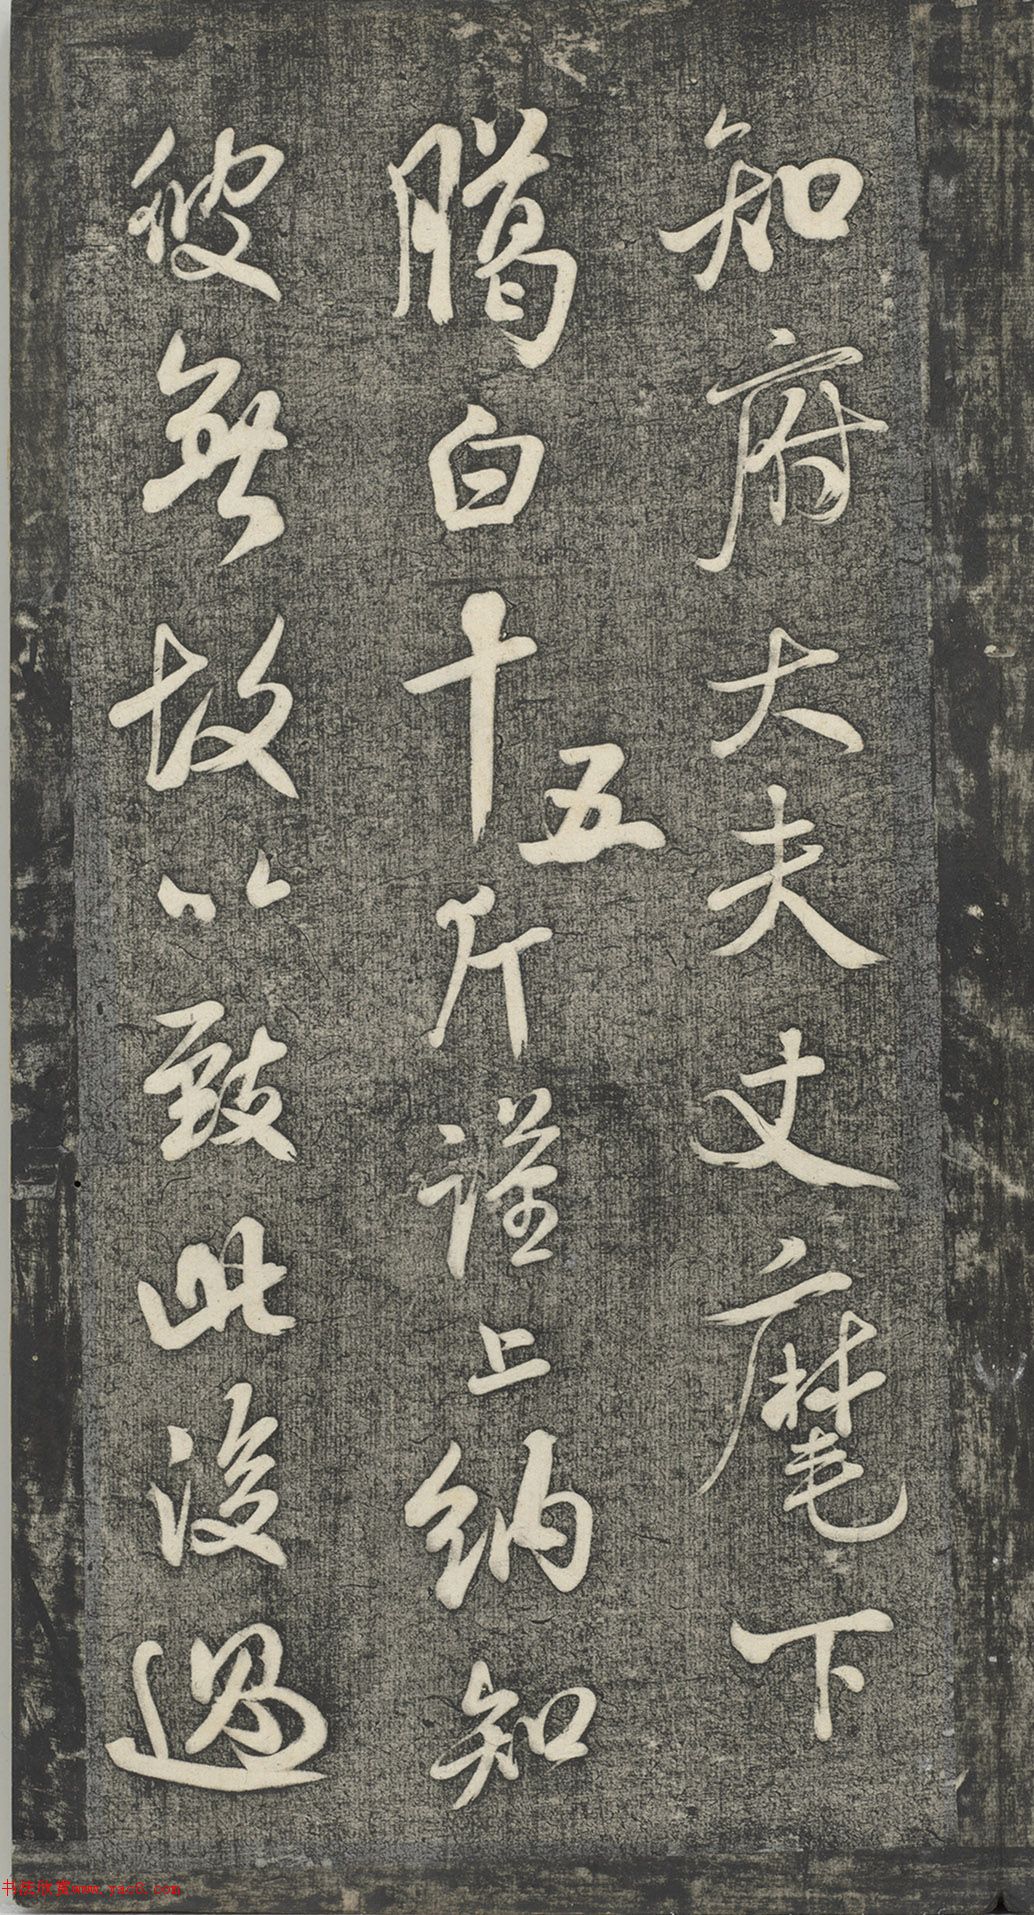 知府大夫丈麾下
臈白十五斤謹上納知
彼無故以致此後過
书法欣赏www.yac8.com